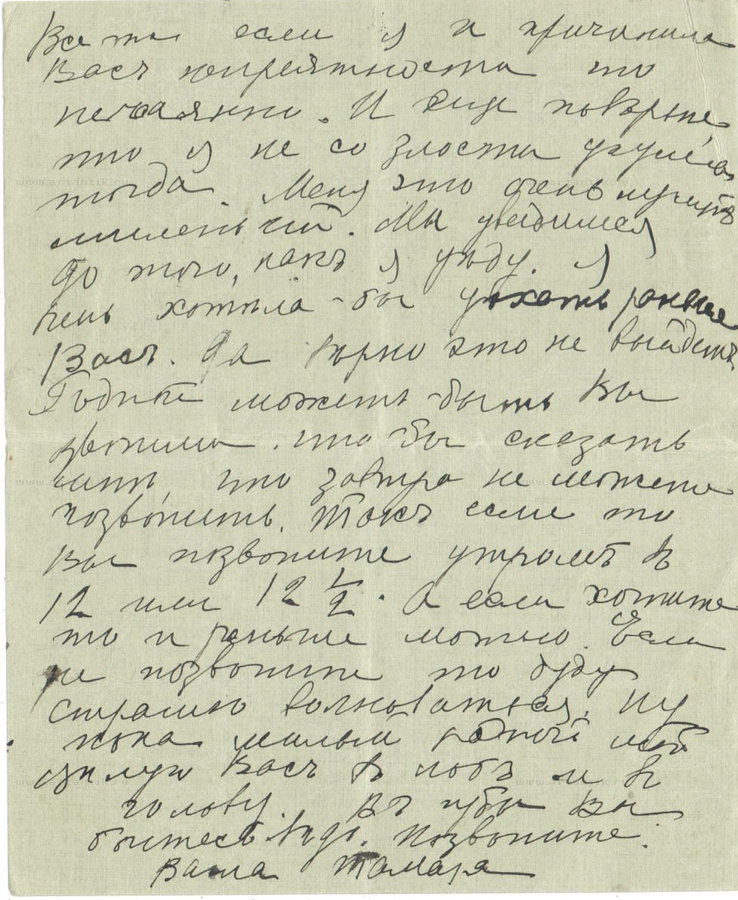 Все то если я и причинила
Васъ непрiятности то
нечаянно. И еще поверьте,
что я не со злости
тогда. Меня это очень мучитъ
миленькiй. Мы увидимся
до того, какъ я уѣду. я
очень хотѣла-бы уѣхать раньше
Васъ. Да вѣрно это не выйдетъ
Родной можетъ-быть Вы
звонили что-бы сказать
мнѣ, что завтра не можете
позвонить. Такъ если то
Вы позвоните утромъ в
12 или 12 1/2. А если хотите
то и раньше можно. Если
не позвоните то буду
страшно волноваться. Ну
пока милый родной мой
цѣлую Васъ в лобъ и в
голову. Въ губы Вы
боитесь. Позвоните.
Ваша Тамара